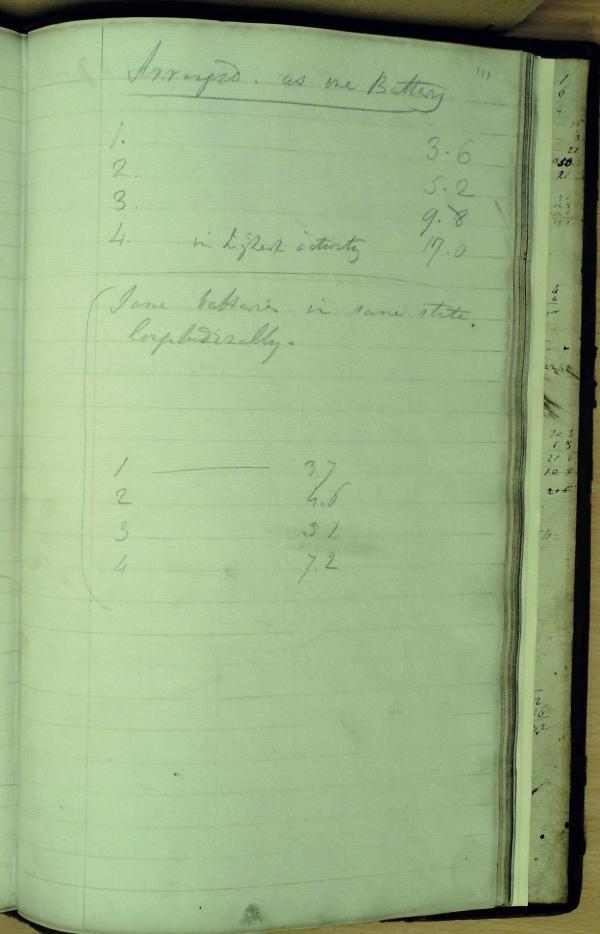 111
Arranged. as one Battery
1. 3.6
2. 5.2
3. 9.8
4. in highest activity 17.0
Same batteries in same state
longitudinally.
1 — 3.7
2 4.6
3 5.1
4 7.2